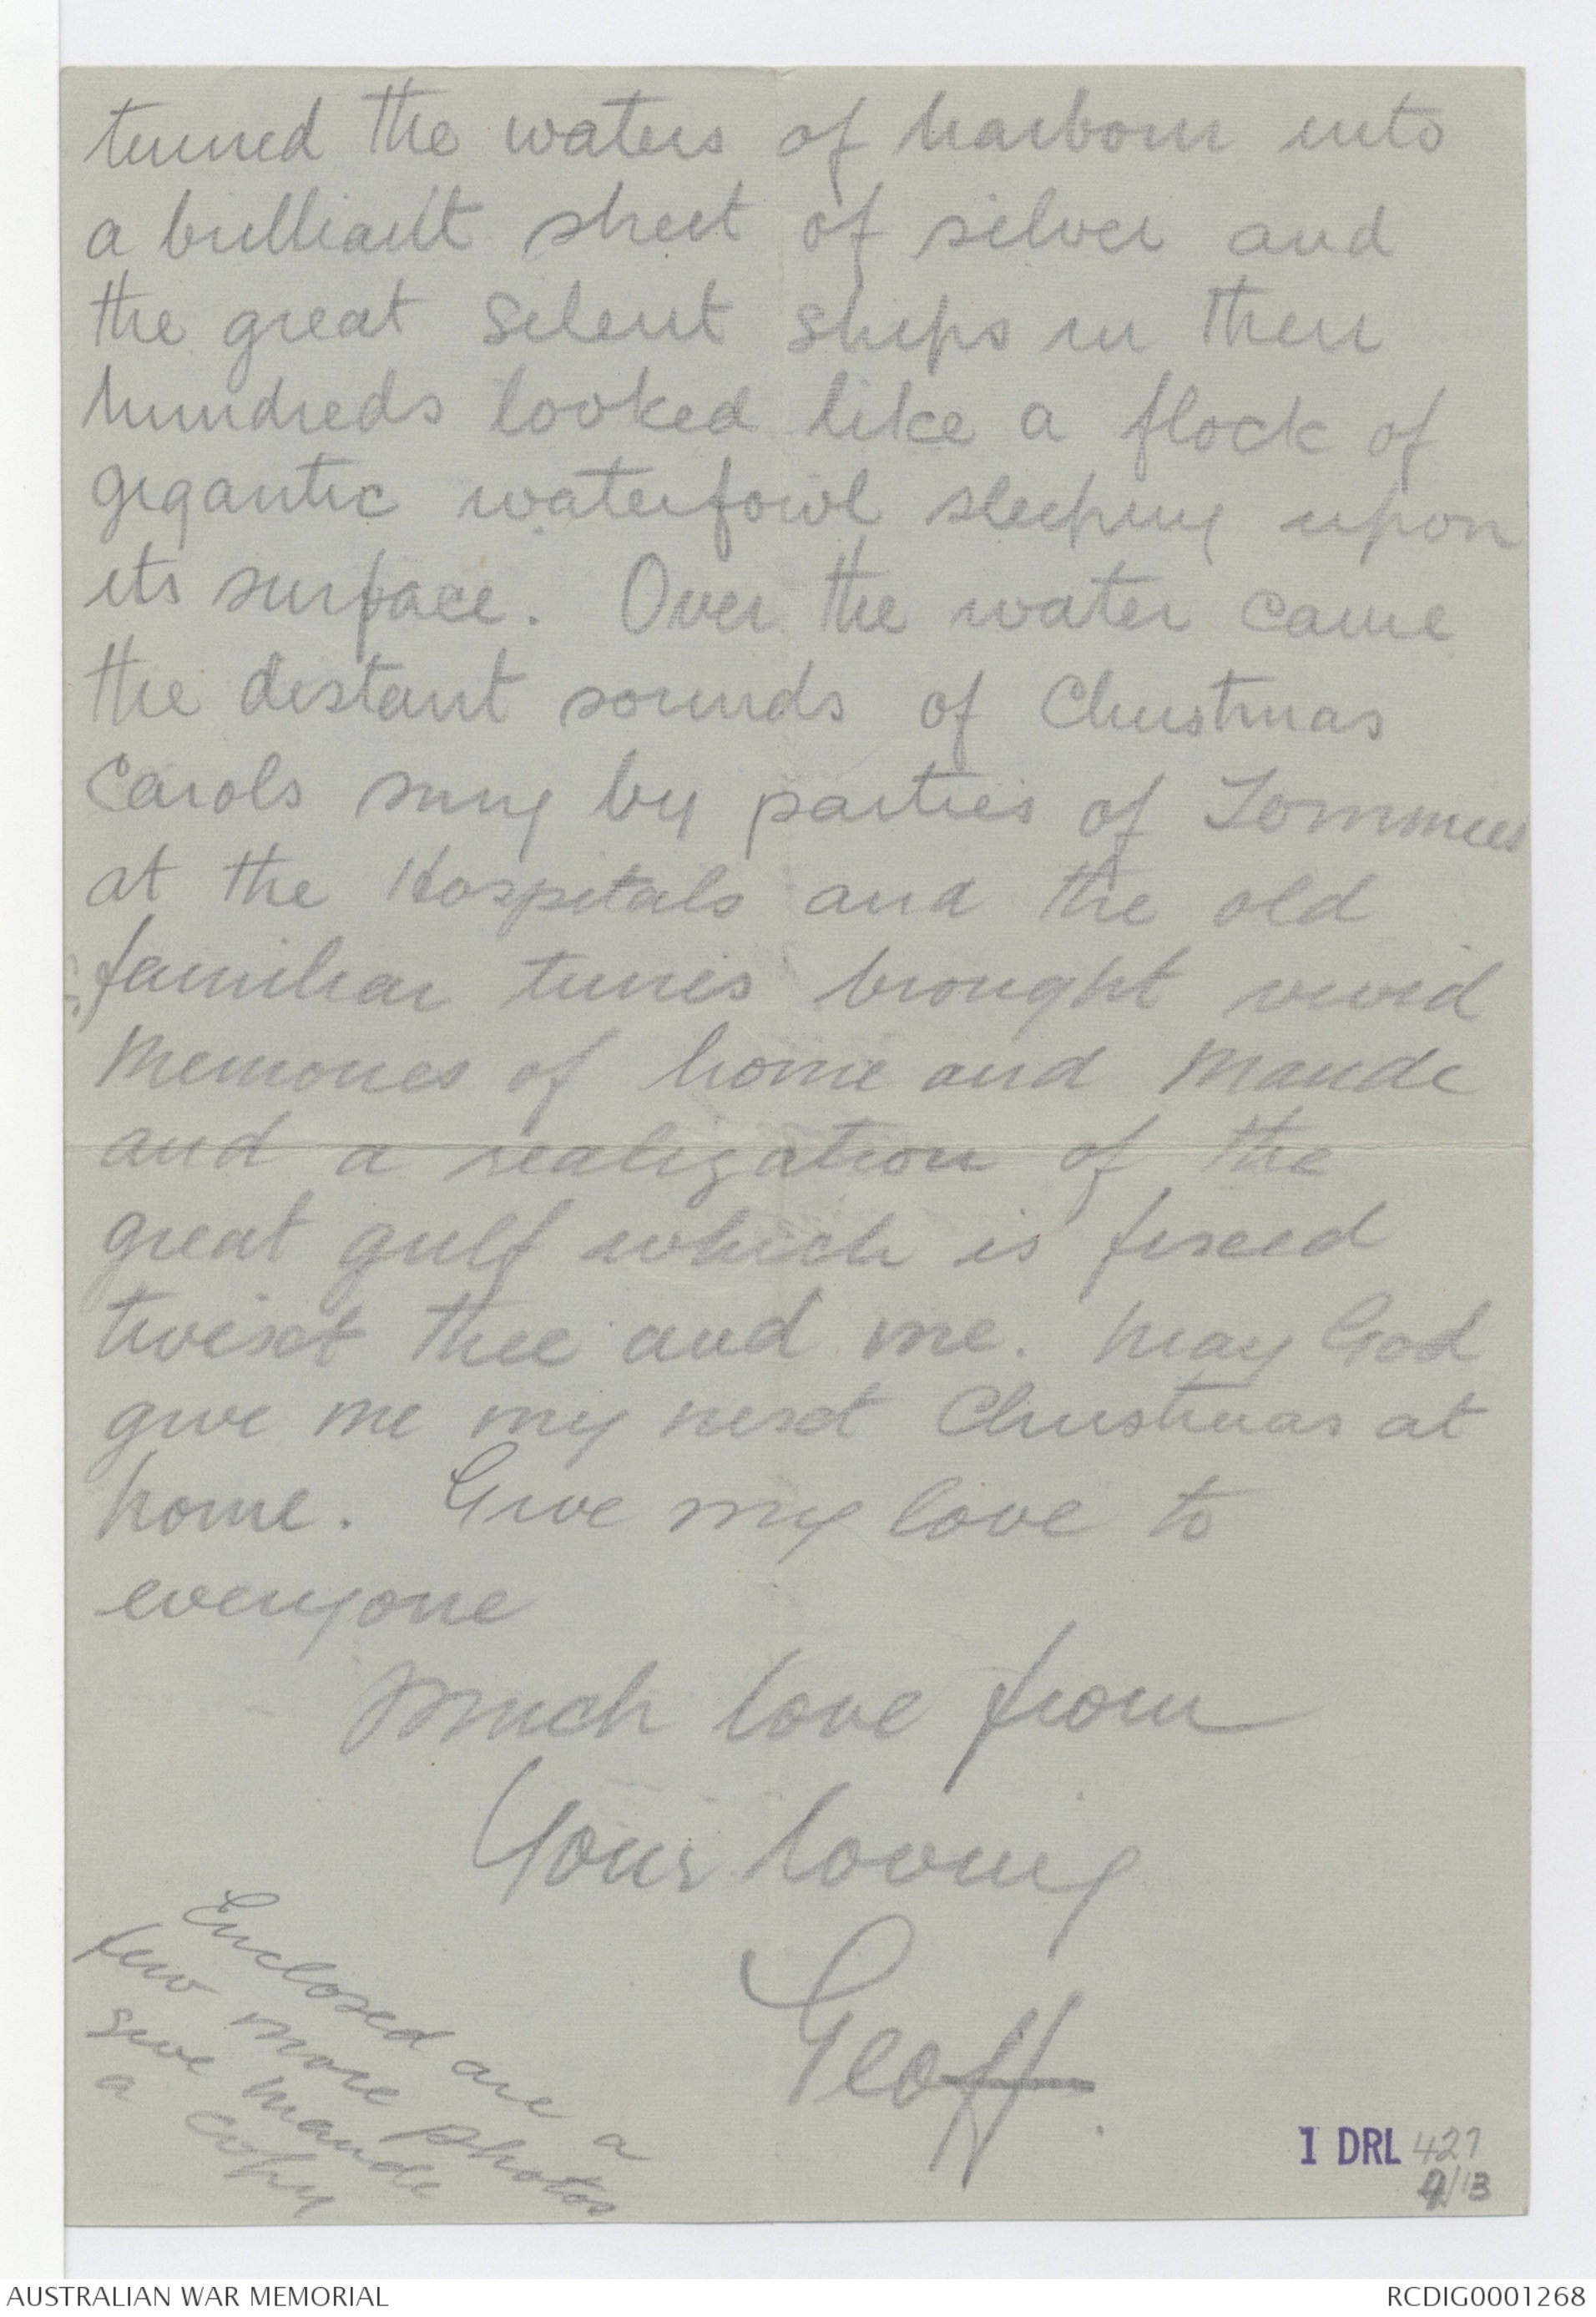 turned the waters of harbour into
a brilliant sheet of silver and
the great silent ships in their
hundreds looked like a flock of
gigantic waterfowl sleeping upon
its surface. Over the water came
the distant sounds of Christmas
Carols sung by parties of Tommies
at the Hospitals and the old
familiar tunes brought vivid
Memories of home and Maude
and a realization of the
great gulf which is fixed
twixt thee and me. May God
give me my next Christmas at
home. Give my love to
everyone
Much love from
Your loving
Geoff.
Enclosed are a
few more photos
give Maude
a copy
1 DRL 427
/13
AUSTRALIAN WAR MEMORIAL
RCDIG0001268